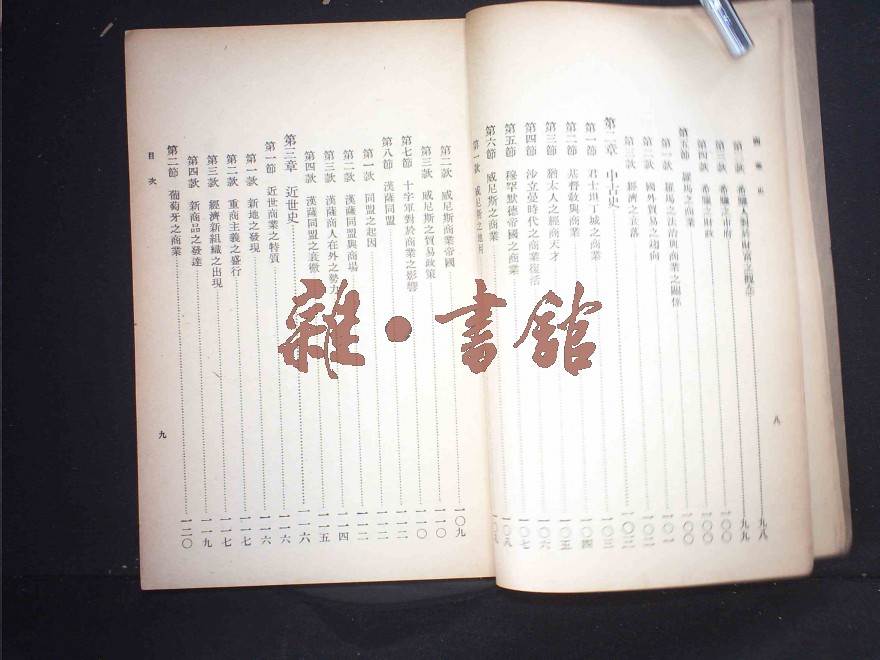 商業史
第二款 希臘人對於財富之觀念 九八
第三款 希臘之市府 九九
第四款 希臘之財政 一〇〇
第五節 羅馬之商業 一〇〇
第一款 羅馬之法治與商業之關係 一〇一
第二款 國外貿易之趨向 一〇二
第三款 經濟之衰落 一〇二
第二章 中古史 一〇三
第一節 君士坦丁城之商業 一〇四
第二節 基督敎與商業 一〇五
第三節 猶太人之經商天才 一〇六
第四節 沙立曼時代之商業復活 一〇七
第五節 穆罕默德帝國之商業
第六節 威尼斯之商業
第一款 威尼斯之地
八
第二款 威尼斯商業帝國 一〇九
第三款 威尼斯之貿易政策 一一〇
第七節 十字軍對於商業之影響 一一〇
第八節 漢薩同盟 一一二
第一款 同盟之起因 一一二
第二款 漢薩同盟與商場 一一四
第三款 漢薩商人在外之勢力 一一五
第四款 漢薩同盟之衰微 一一六
第三章 近世史 一一六
第一節 近世商業之特質 一一六
第一款 新地之發現 一一七
第二款 重商主義之盛行 一一七
第三款 經濟新組織之出現 一一九
第四款 新商品之發達
第二節 葡萄牙之商業 一二〇
目次
九
雜・書館